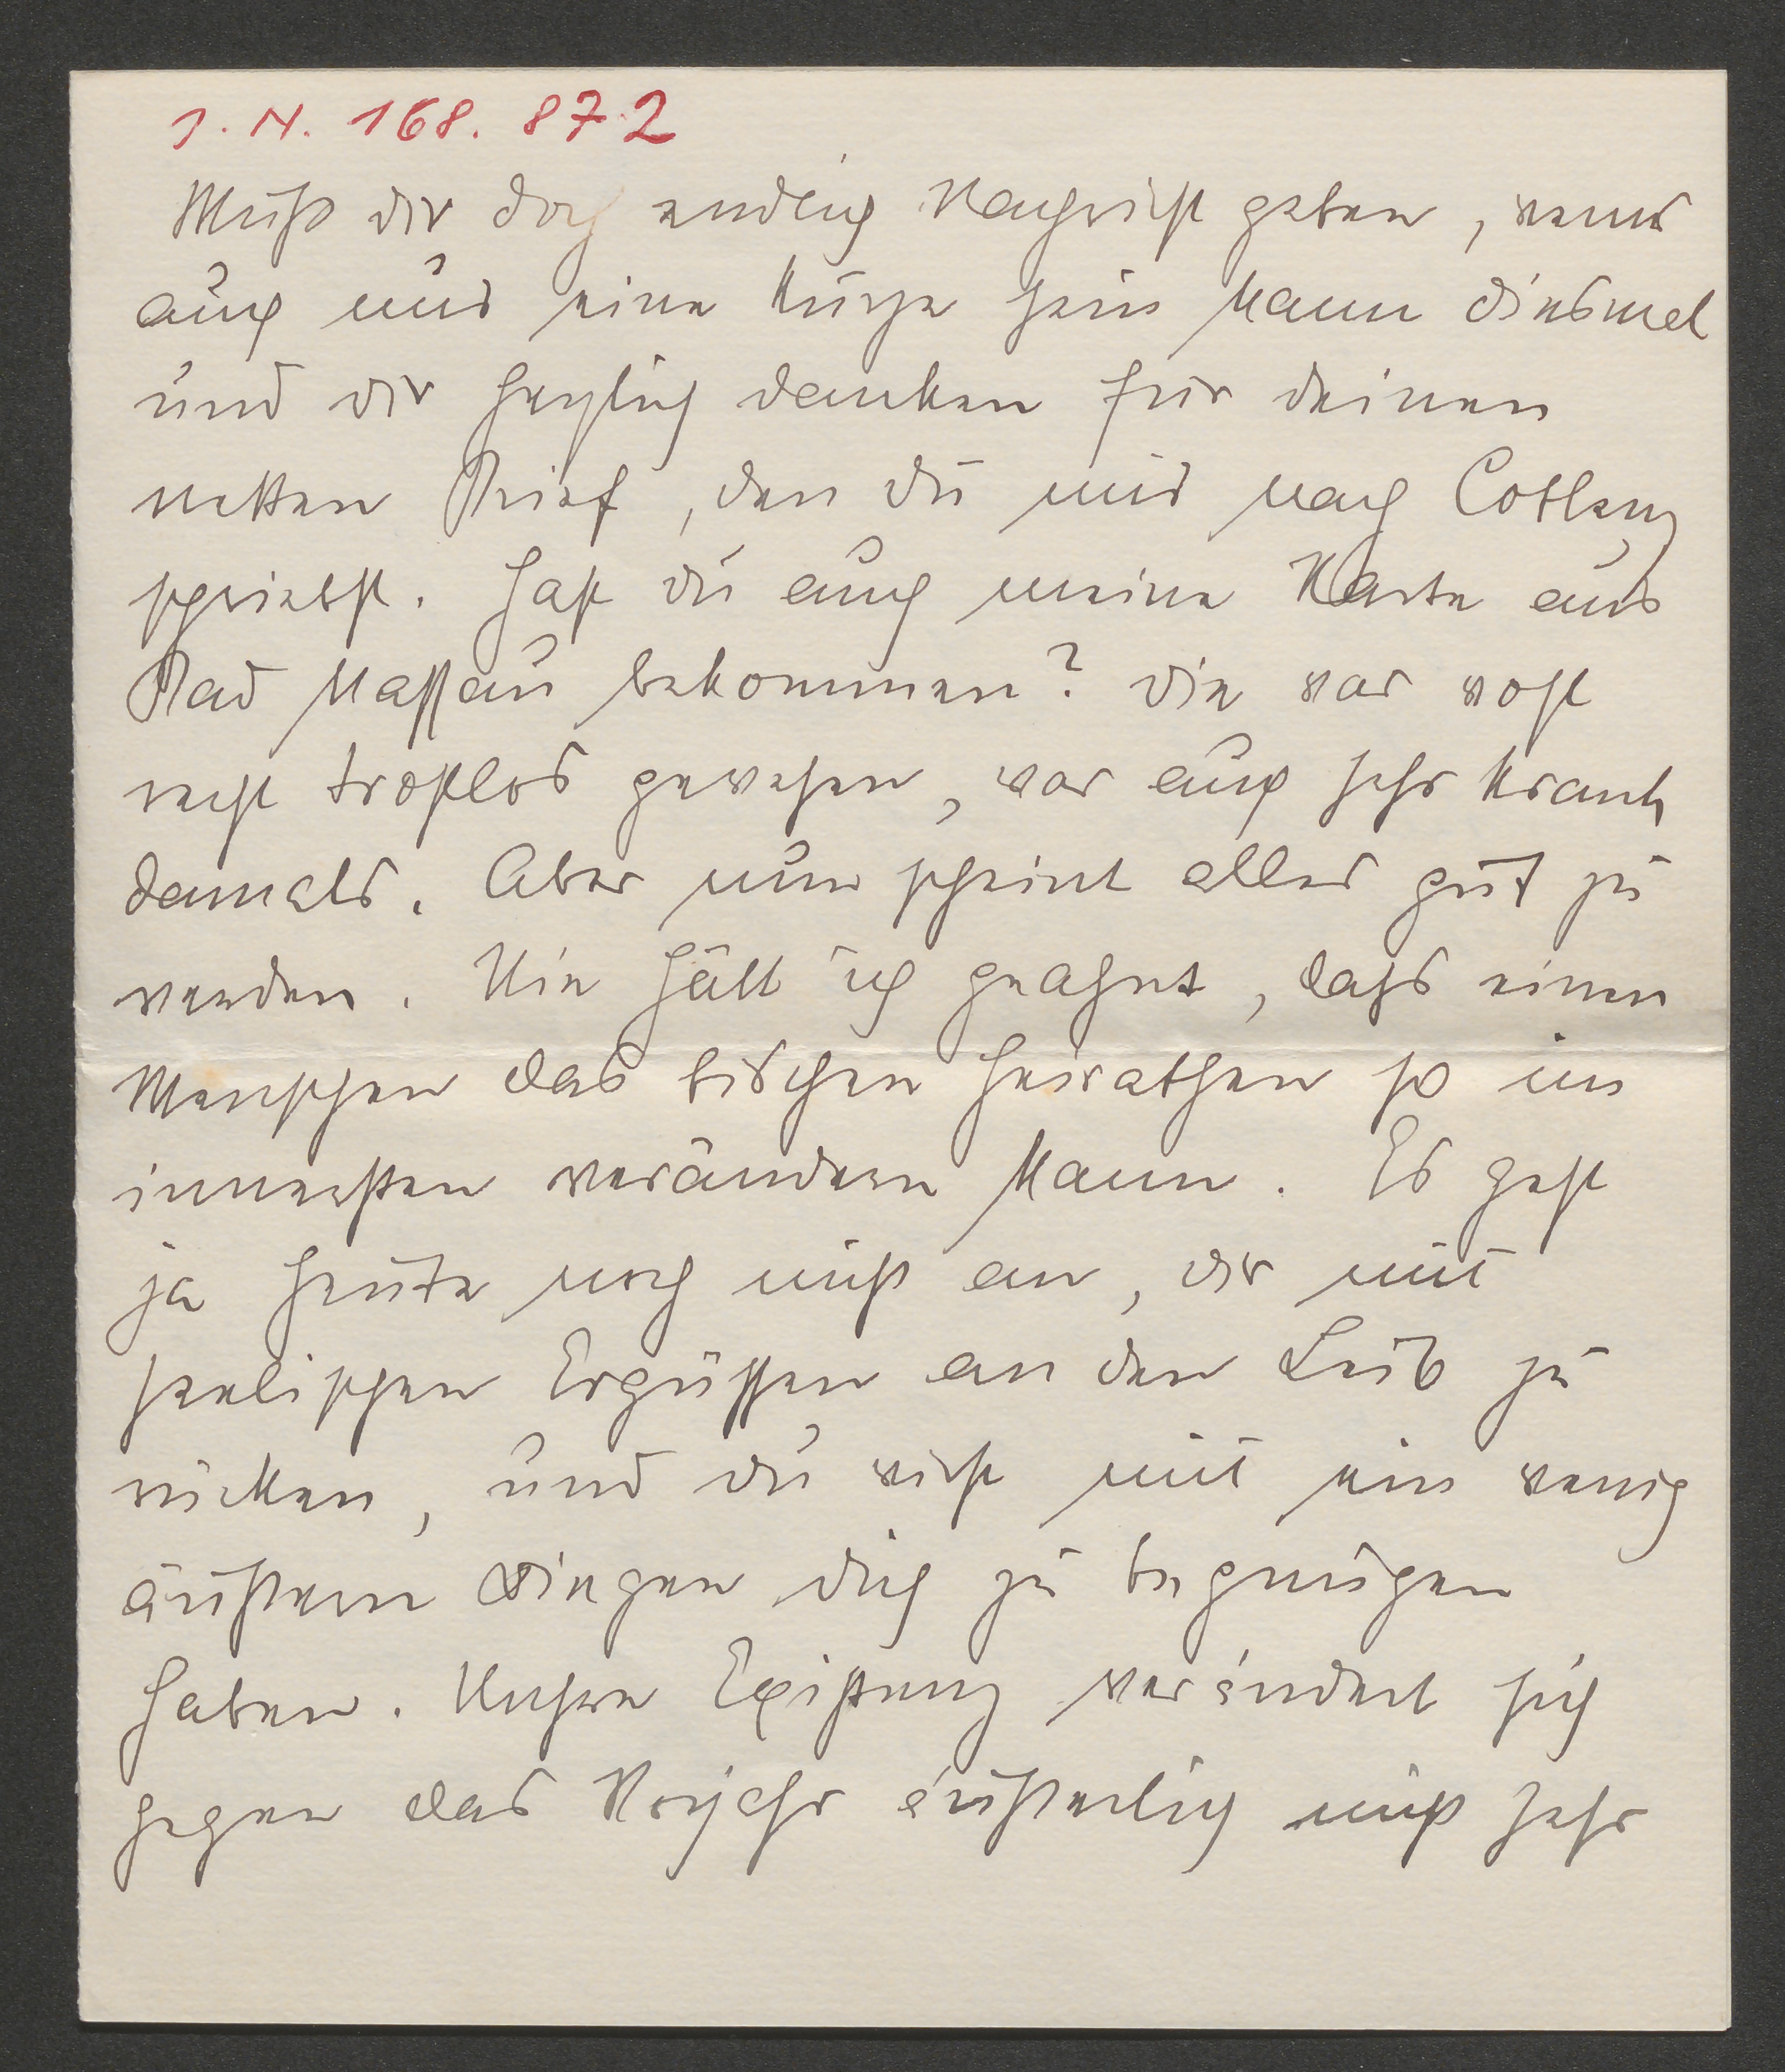 I. N. 168. 872
Muß dir doch endlich Nachricht geben, wenns
auch nur eine kurze sein kann diesmal
und dir herzlich danken für deinen
netten Brief, den du mir nach Coblenz
schriebst. Hast du auch meine Karte aus
Bad Nassau bekommen? Die war wohl
recht trostlos gewesen, war auch sehr krank
damals. Aber nun scheint alles gut zu
werden. Nie hätt ich geahnt, dass einen
Menschen das bischen Heirathen so im
innersten verändern kann. Es geht
ja heute noch nicht an, dir mit
seelischen Ergüssen an den Leib zu
rücken, und du wirst mit ein wenig
äußern Dingen dich zu begnügen
haben. Unsre Existenz verändert sich
gegen das Vorjahr äußerlich nicht sehr